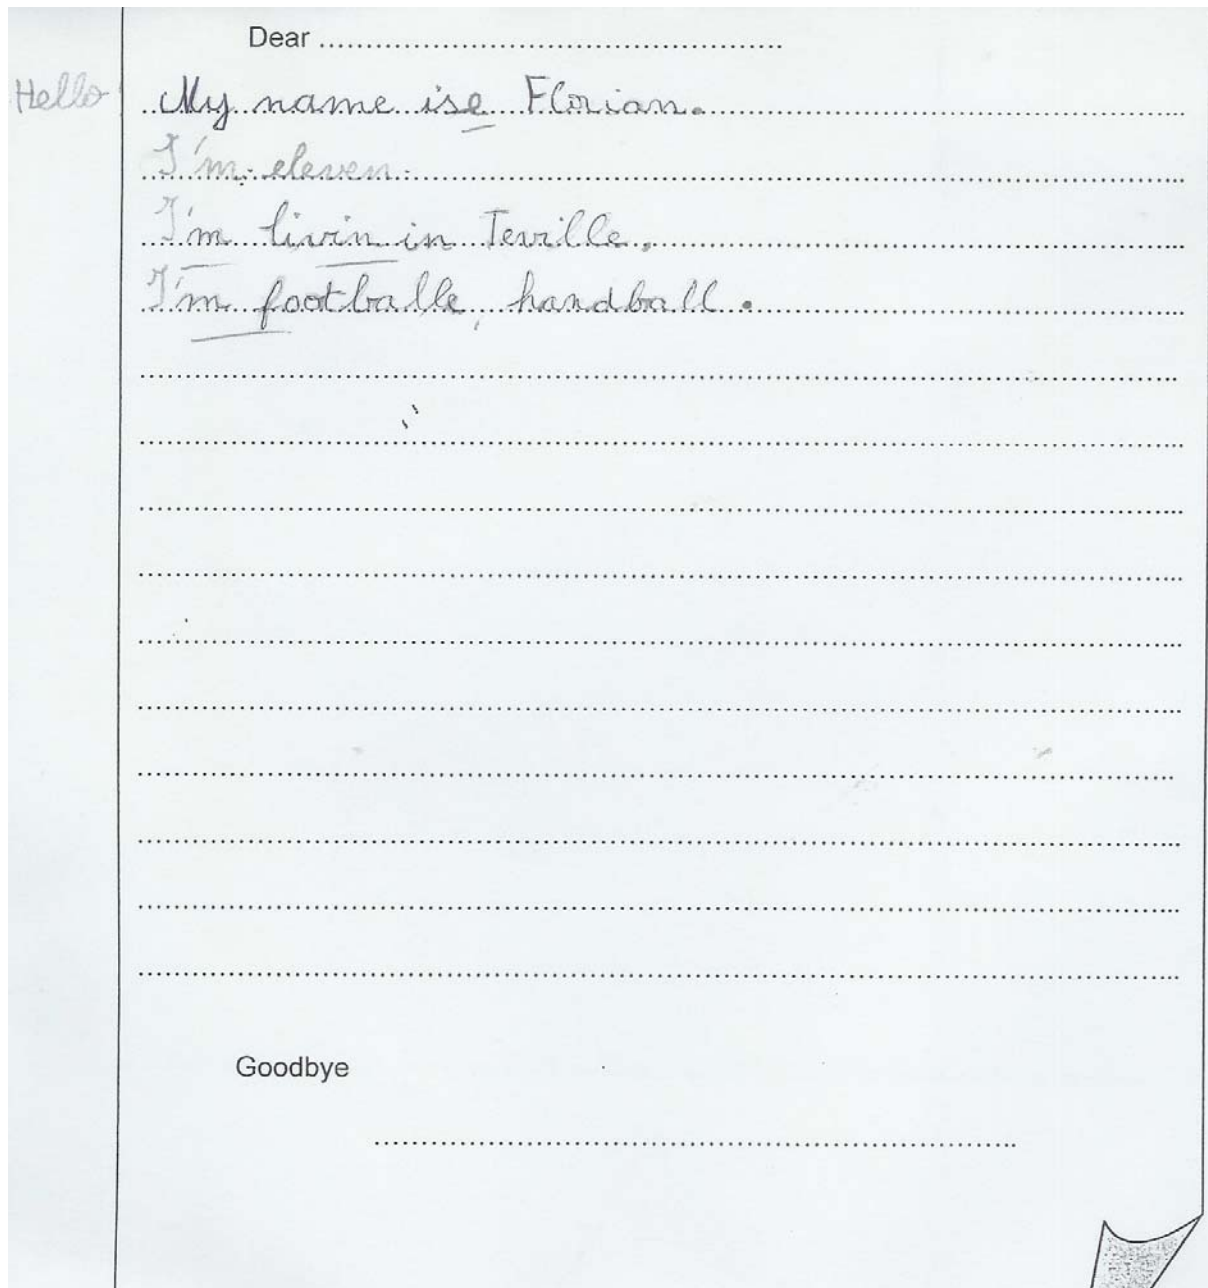 Dear ................................................
Hello! My name ise Florian.
I'm eleven.
I'm livin in Teville.
I'm footballe, handball.
Goodbye